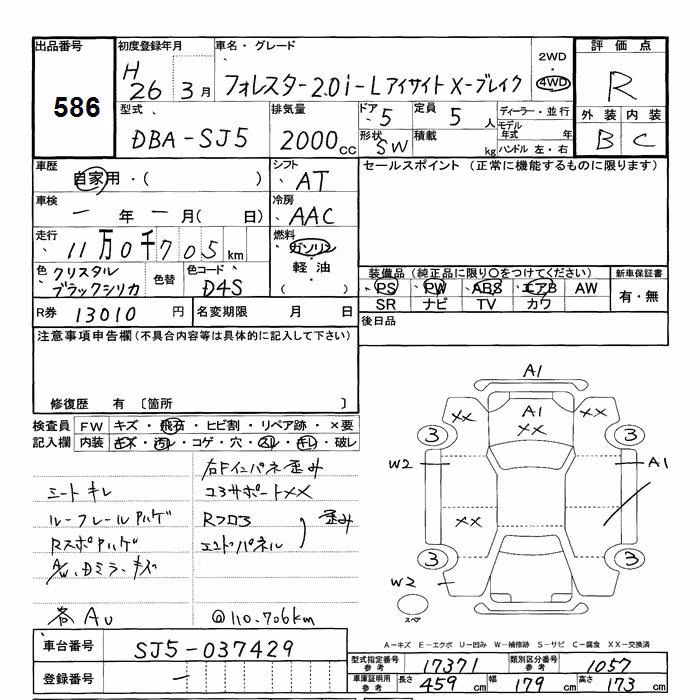 出品番号
586
初度登録年月
H 26 3月
車名・グレード
フォレスター2.0i-LアイサイトX-ブレイク
2WD
4WD
評価点
R
外装 内装
B C
型式
DBA-SJ5
排気量
2000cc
ドア 5
定員 5人
形状 SW
積載 kg
ディーラー・並行
モデル年式 年
ハンドル 左・右
車歴
自家用・( )
シフト
AT
車検
一年一月( 日)
冷房
AAC
走行
11万0千705km
燃料
ガソリン
・
軽油
( )
色
クリスタル
ブラックシリカ
色替
色コード
D4S
R券 13010円
名変期限 月 日
セールスポイント (正常に機能するものに限ります)
装備品(純正品に限り○をつけてください)
新車保証書
PS PW ABS エアB AW
SR ナビ TV カワ
有・無
後日品
注意事項申告欄(不具合内容等は具体的に記入して下さい)
修復歴 有 〔箇所 〕
検査員
記入欄
FW キズ・飛石・ヒビ割・リペア跡・×要
内装 キズ・汚レ・コゲ・穴・スレ・キレ・破レ
右Fインパネ歪み
シートキレ
コアサポートXX
ルーフレールアルゲ
Rフロア
歪み
Rスポアルゲ
エンドパネル
A/w、Dミラーキズ
各AU
@110.706km
A1
XX
A1
XX
XX
3
3
W2
A1
XX
3
3
W2
スペア
A-キズ E-エクボ U-凹み W-補修跡 S-サビ C-腐食 XX-交換済
車台番号
SJ5-037429
登録番号
一
型式指定番号
参考
17371
類別区分番号
参考
1057
車庫証明用
参考
長さ 459cm
幅 179cm
高さ 173cm